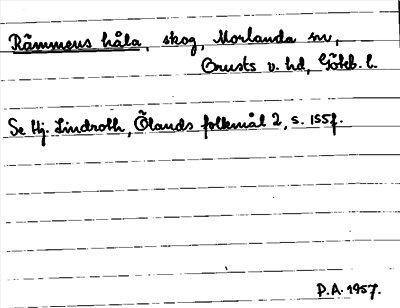 Rämmens håla, skog, Morlanda sn,
Orusts v. hd, Göteb. l.
Se Hj. Lindroth, Ölands folkmål 2, s. 155f.
P.A. 1957.